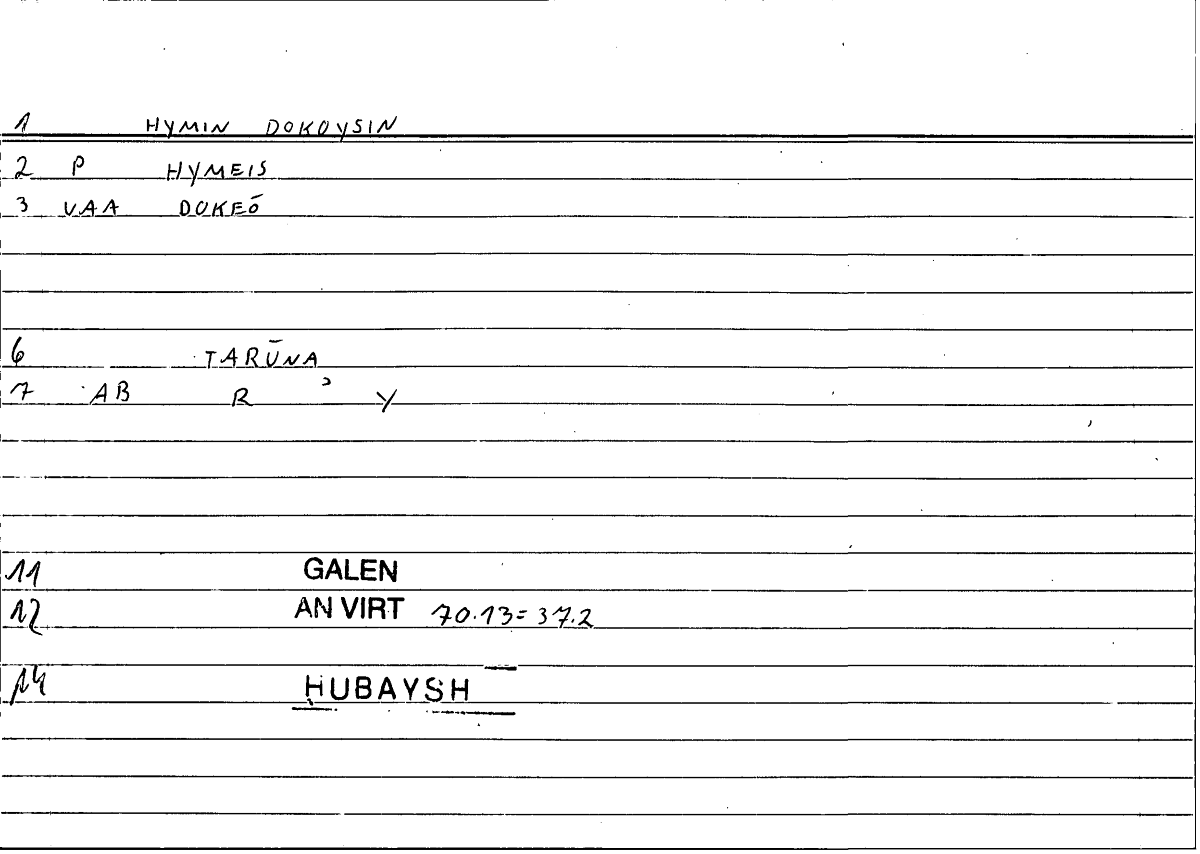 1 HYMIN DOKOYSIN
2 P HYMEIS
3 VAA DOKEŌ
6 TARŪNA
7 AB R ʾ Y
11 GALEN
12 AN VIRT 70.13=37.2
14 ḤUBAYSH